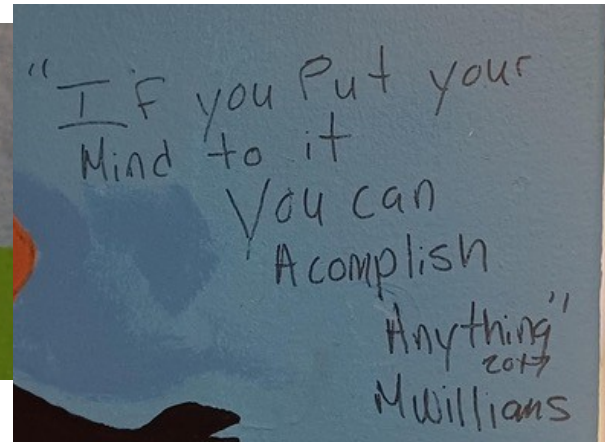 "If you Put your
Mind to it
You can
Acomplish
Anything"
2017
MWillians